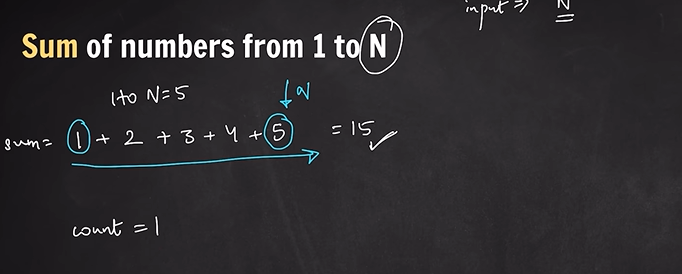 input ⇒ N
Sum of numbers from 1 to N
1 to N=5
↓ N
sum= 1 + 2 + 3 + 4 + 5 = 15 ✓
count = 1